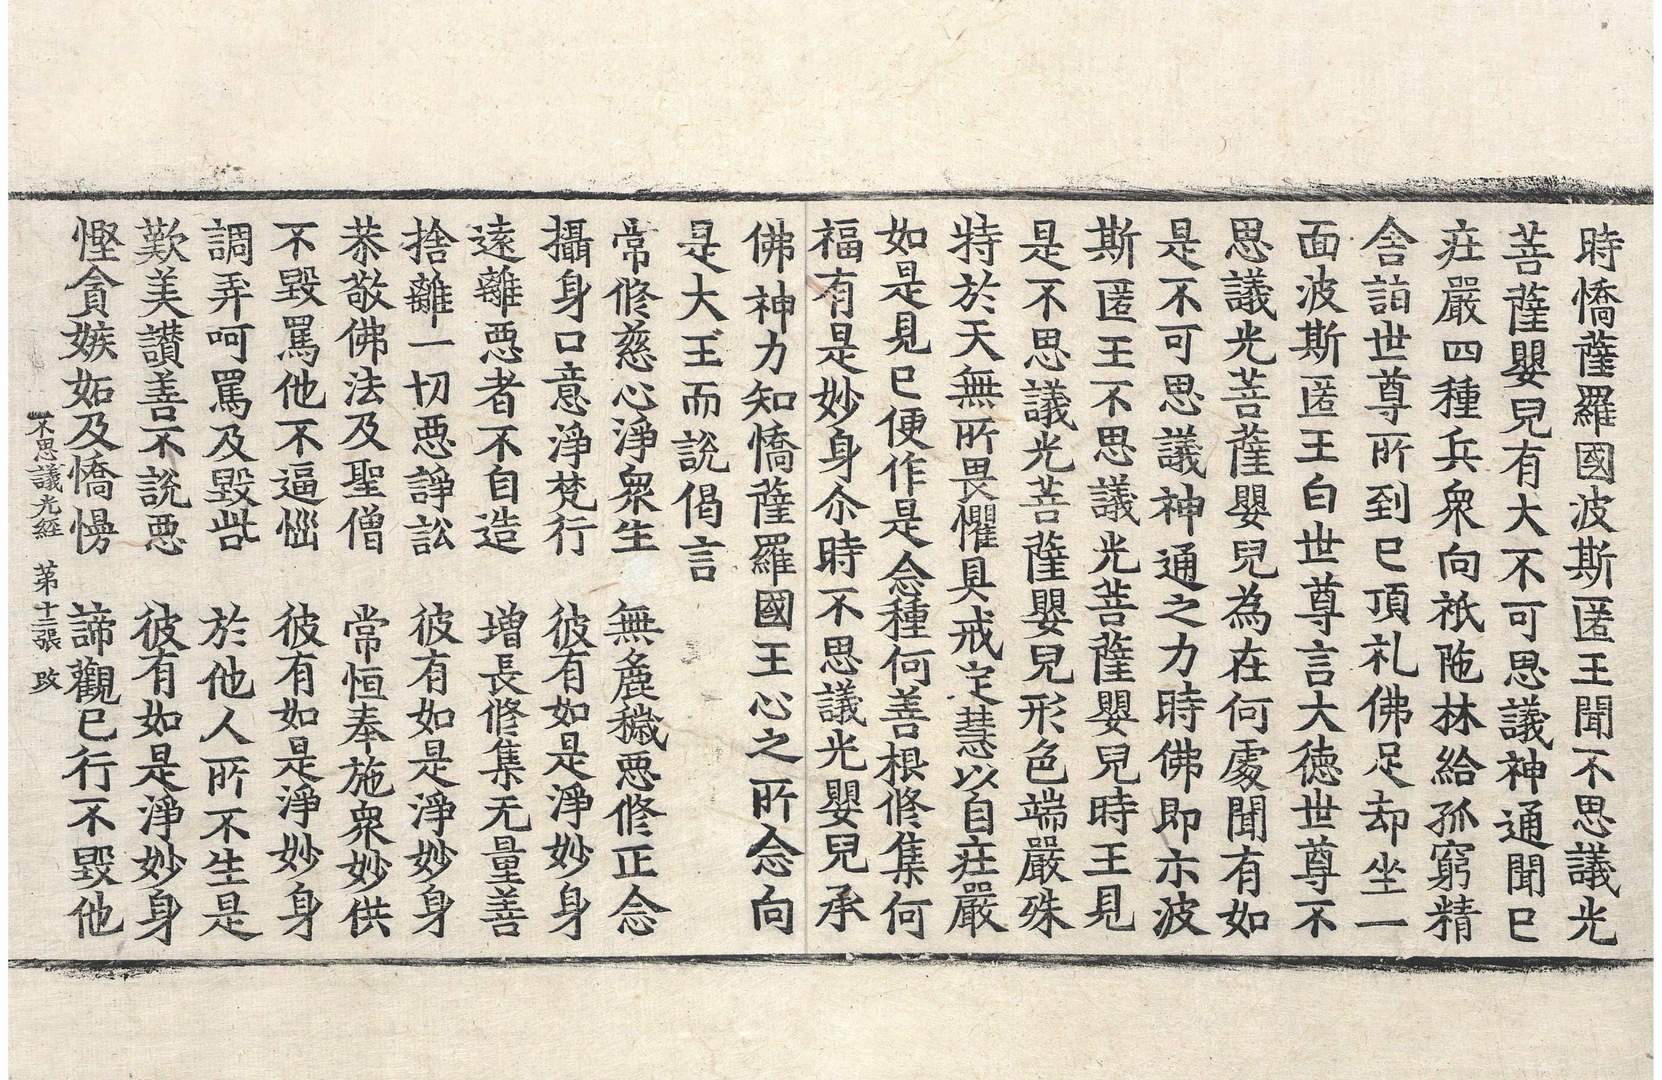 時憍薩羅國波斯匿王聞不思議光
菩薩嬰兒有大不可思議神通聞已
莊嚴四種兵衆向祇陁林給孤窮精
舍詣世尊所到已頂礼佛足却坐一
面波斯匿王白世尊言大德世尊不
思議光菩薩嬰兒為在何處聞有如
是不可思議神通之力時佛即示波
斯匿王不思議光菩薩嬰兒時王見
是不思議光菩薩嬰兒形色端嚴殊
特於天無所畏懼具戒定慧以自莊嚴
如是見已便作是念種何善根修集何
福有是妙身尒時不思議光嬰兒承
佛神力知憍薩羅國王心之所念向
是大王而說偈言
常修慈心淨衆生　無麁穢惡修正念
攝身口意淨梵行　彼有如是淨妙身
遠離惡者不自造　增長修集无量善
捨離一切惡諍訟　彼有如是淨妙身
恭敬佛法及聖僧　常恒奉施衆妙供
不毀罵他不逼惱　彼有如是淨妙身
調弄呵罵及毀呰　於他人所不生是
歎美讚善不說惡　彼有如是淨妙身
慳貪嫉妬及憍慢　諦觀已行不毀他
不思議光經　第十二張　改